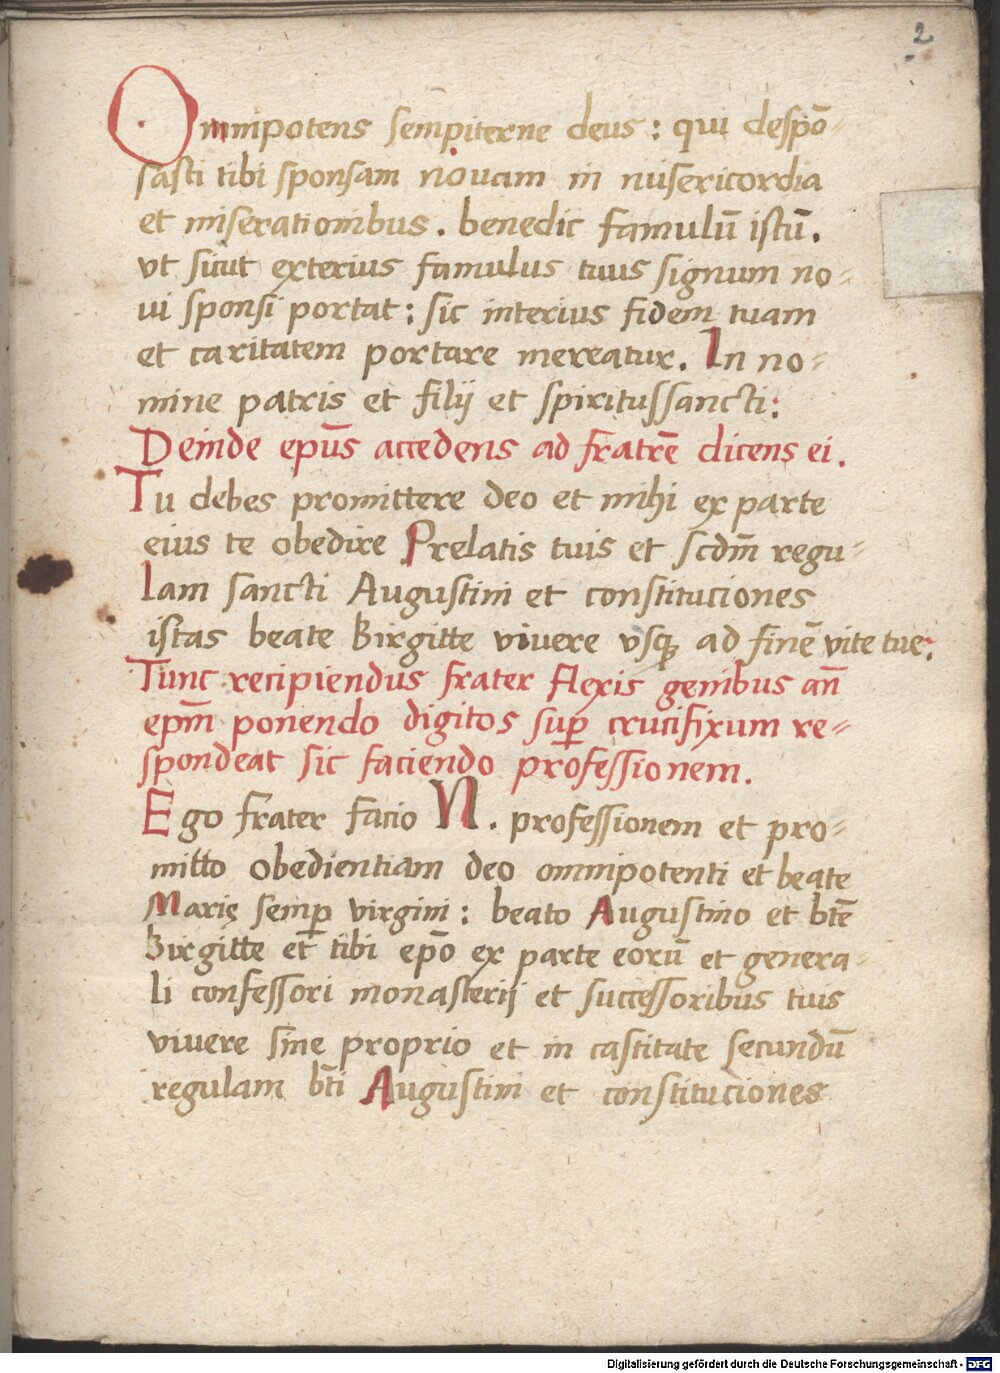 2
Omnipotens sempiterne deus : qui despō=
sasti tibi sponsam nouam in misericordia
et miserationibus . benedic famulū istū .
vt sicut exterius famulus tuus signum no=
ui sponsi portat : sic interius fidem tuam
et caritatem portare mereatur . In no=
mine patris et filij et spiritussancti :
Deinde ep̄us accedens ad fratrē dicens ei .
Tu debes promittere deo et mihi ex parte
eius te obedire Prelatis tuis et scdm̄ regu=
lam sancti Augustini et constituciones
istas beate Birgitte viuere vsqꝫ ad finē vite tue :
Tunc recipiendus frater flexis genibus an̄
ep̄m ponendo digitos suꝑ crucifixum re=
spondeat sic faciendo professionem .
Ego frater facio N . professionem et pro=
mitto obedientiam deo omnipotenti et beate
Marię semꝑ virgini : beato Augustino et bt̄e
Birgitte et tibi ep̄o ex parte eorū et genera=
li confessori monasterij et successoribus tuis
viuere sine proprio et in castitate secundū
regulam bt̄i Augustini et constituciones
Digitalisierung gefördert durch die Deutsche Forschungsgemeinschaft - DFG